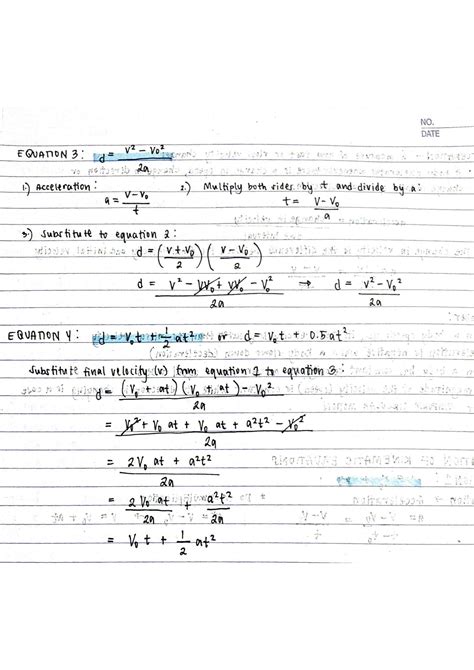 NO.
DATE
EQUATION 3: d = (v² - v₀²)/2a
1.) Acceleration: 2.) Multiply both sides by t and divide by a:
a = (v - v₀)/t t = (v - v₀)/a
3.) Substitute to equation 2:
d = ((v + v₀)/2) ((v - v₀)/2)
d = (v² - vv₀ + vv₀ - v₀²)/2a → d = (v² - v₀²)/2a
EQUATION 4: d = v₀t + 1/2 at² or d = v₀t + 0.5at²
Substitute final velocity (v) from equation 1 to equation 3:
d = ((v₀ + at)(v₀ + at) - v₀²)/2a
= (v₀² + v₀at + v₀at + a²t² - v₀²)/2a
= (2v₀at + a²t²)/2a
= 2v₀at/2a + a²t²/2a
= v₀t + 1/2 at²